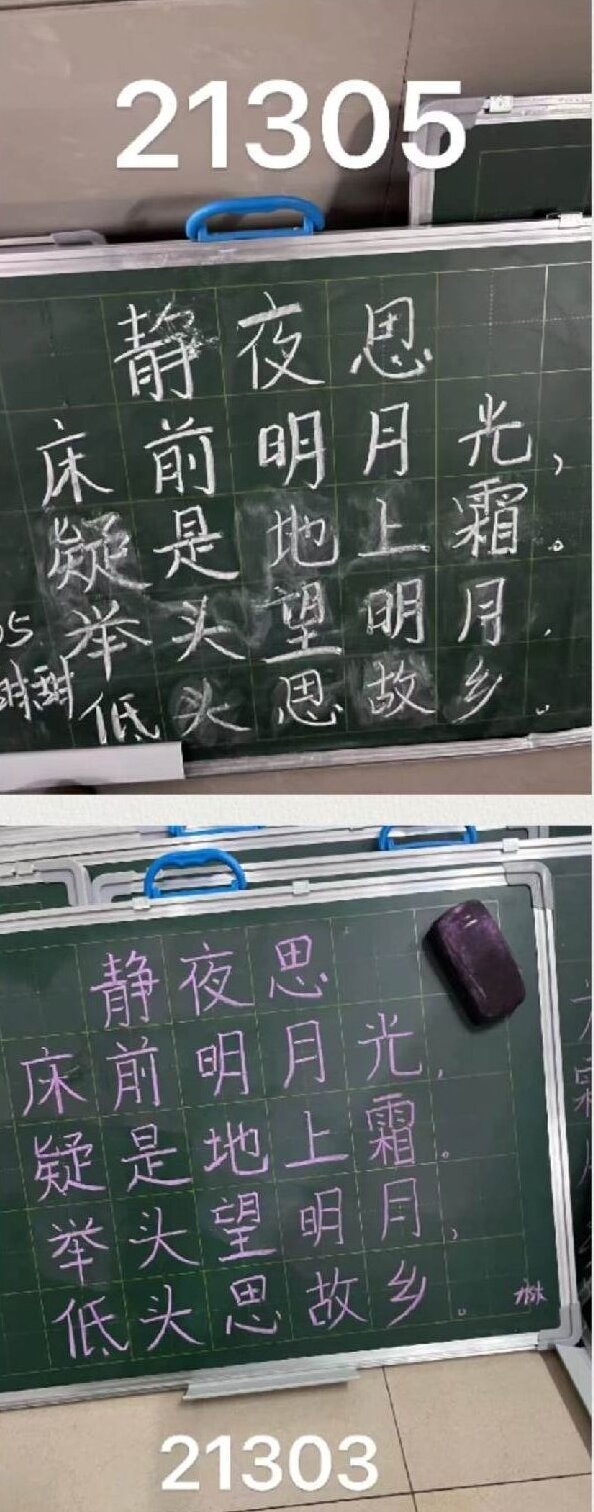 21305
静夜思
床前明月光，
疑是地上霜。
举头望明月.
05
低头思故乡。
静夜思
床前明月光,
疑是地上霜。
举头望明月,
低头思故乡。
21303